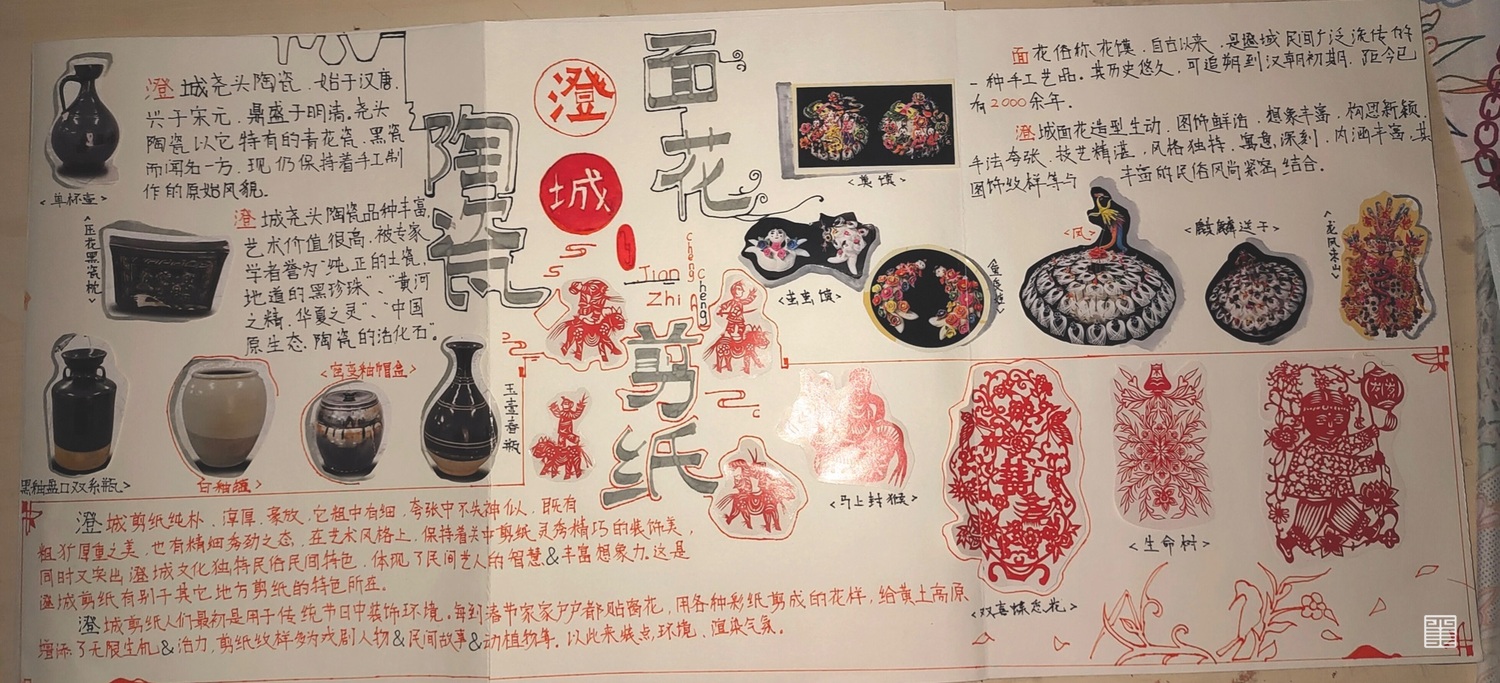 澄城
面花
陶瓷
剪纸
Jian
Zhi
cheng
cheng
澄城尧头陶瓷，始于汉唐，
兴于宋元，鼎盛于明清，尧头
陶瓷以它特有的青花瓷、黑瓷
而闻名一方，现仍保持着手工制
作的原始风貌。
<单杯壶>
澄城尧头陶瓷品种丰富，
艺术价值很高，被专家
学者誉为“纯正的土瓷，
地道的黑珍珠”、“黄河
之精，华夏之灵”、“中国
原生态陶瓷的活化石”。
<压花黑瓷枕>
<窑变釉帽盒>
玉壶春瓶
黑釉盘口双系瓶>
<白釉罐>
面花俗称花馍，自古以来，是澄城民间广泛流传的
一种手工艺品。其历史悠久，可追朔到汉朝初期，距今已
有2000余年。
澄城面花造型生动，图饰鲜活，想象丰富，构思新颖，
手法夸张，技艺精湛，风格独特，寓意深刻，内涵丰富，其
图饰纹样等与丰富的民俗风尚紧密结合。
<凤>
<麒麟送子>
<龙凤来山>
澄城剪纸纯朴、淳厚、豪放，它粗中有细，夸张中不失神似，既有
粗犷厚重之美，也有精细秀劲之态，在艺术风格上，保持着关中剪纸灵秀精巧的装饰美，
同时又突出澄城文化独特民俗民间特色，体现了民间艺人的智慧&丰富想象力，这是
澄城剪纸有别于其它地方剪纸的特色所在。
澄城剪纸人们最初是用于传统节日中装饰环境，每到春节家家户户都贴窗花，用各种彩纸剪成的花样，给黄土高原
增添了无限生机&活力，剪纸纹样多为戏剧人物&民间故事&动植物等，以此来装点环境，渲染气氛。
<马上封猴>
<生命树>